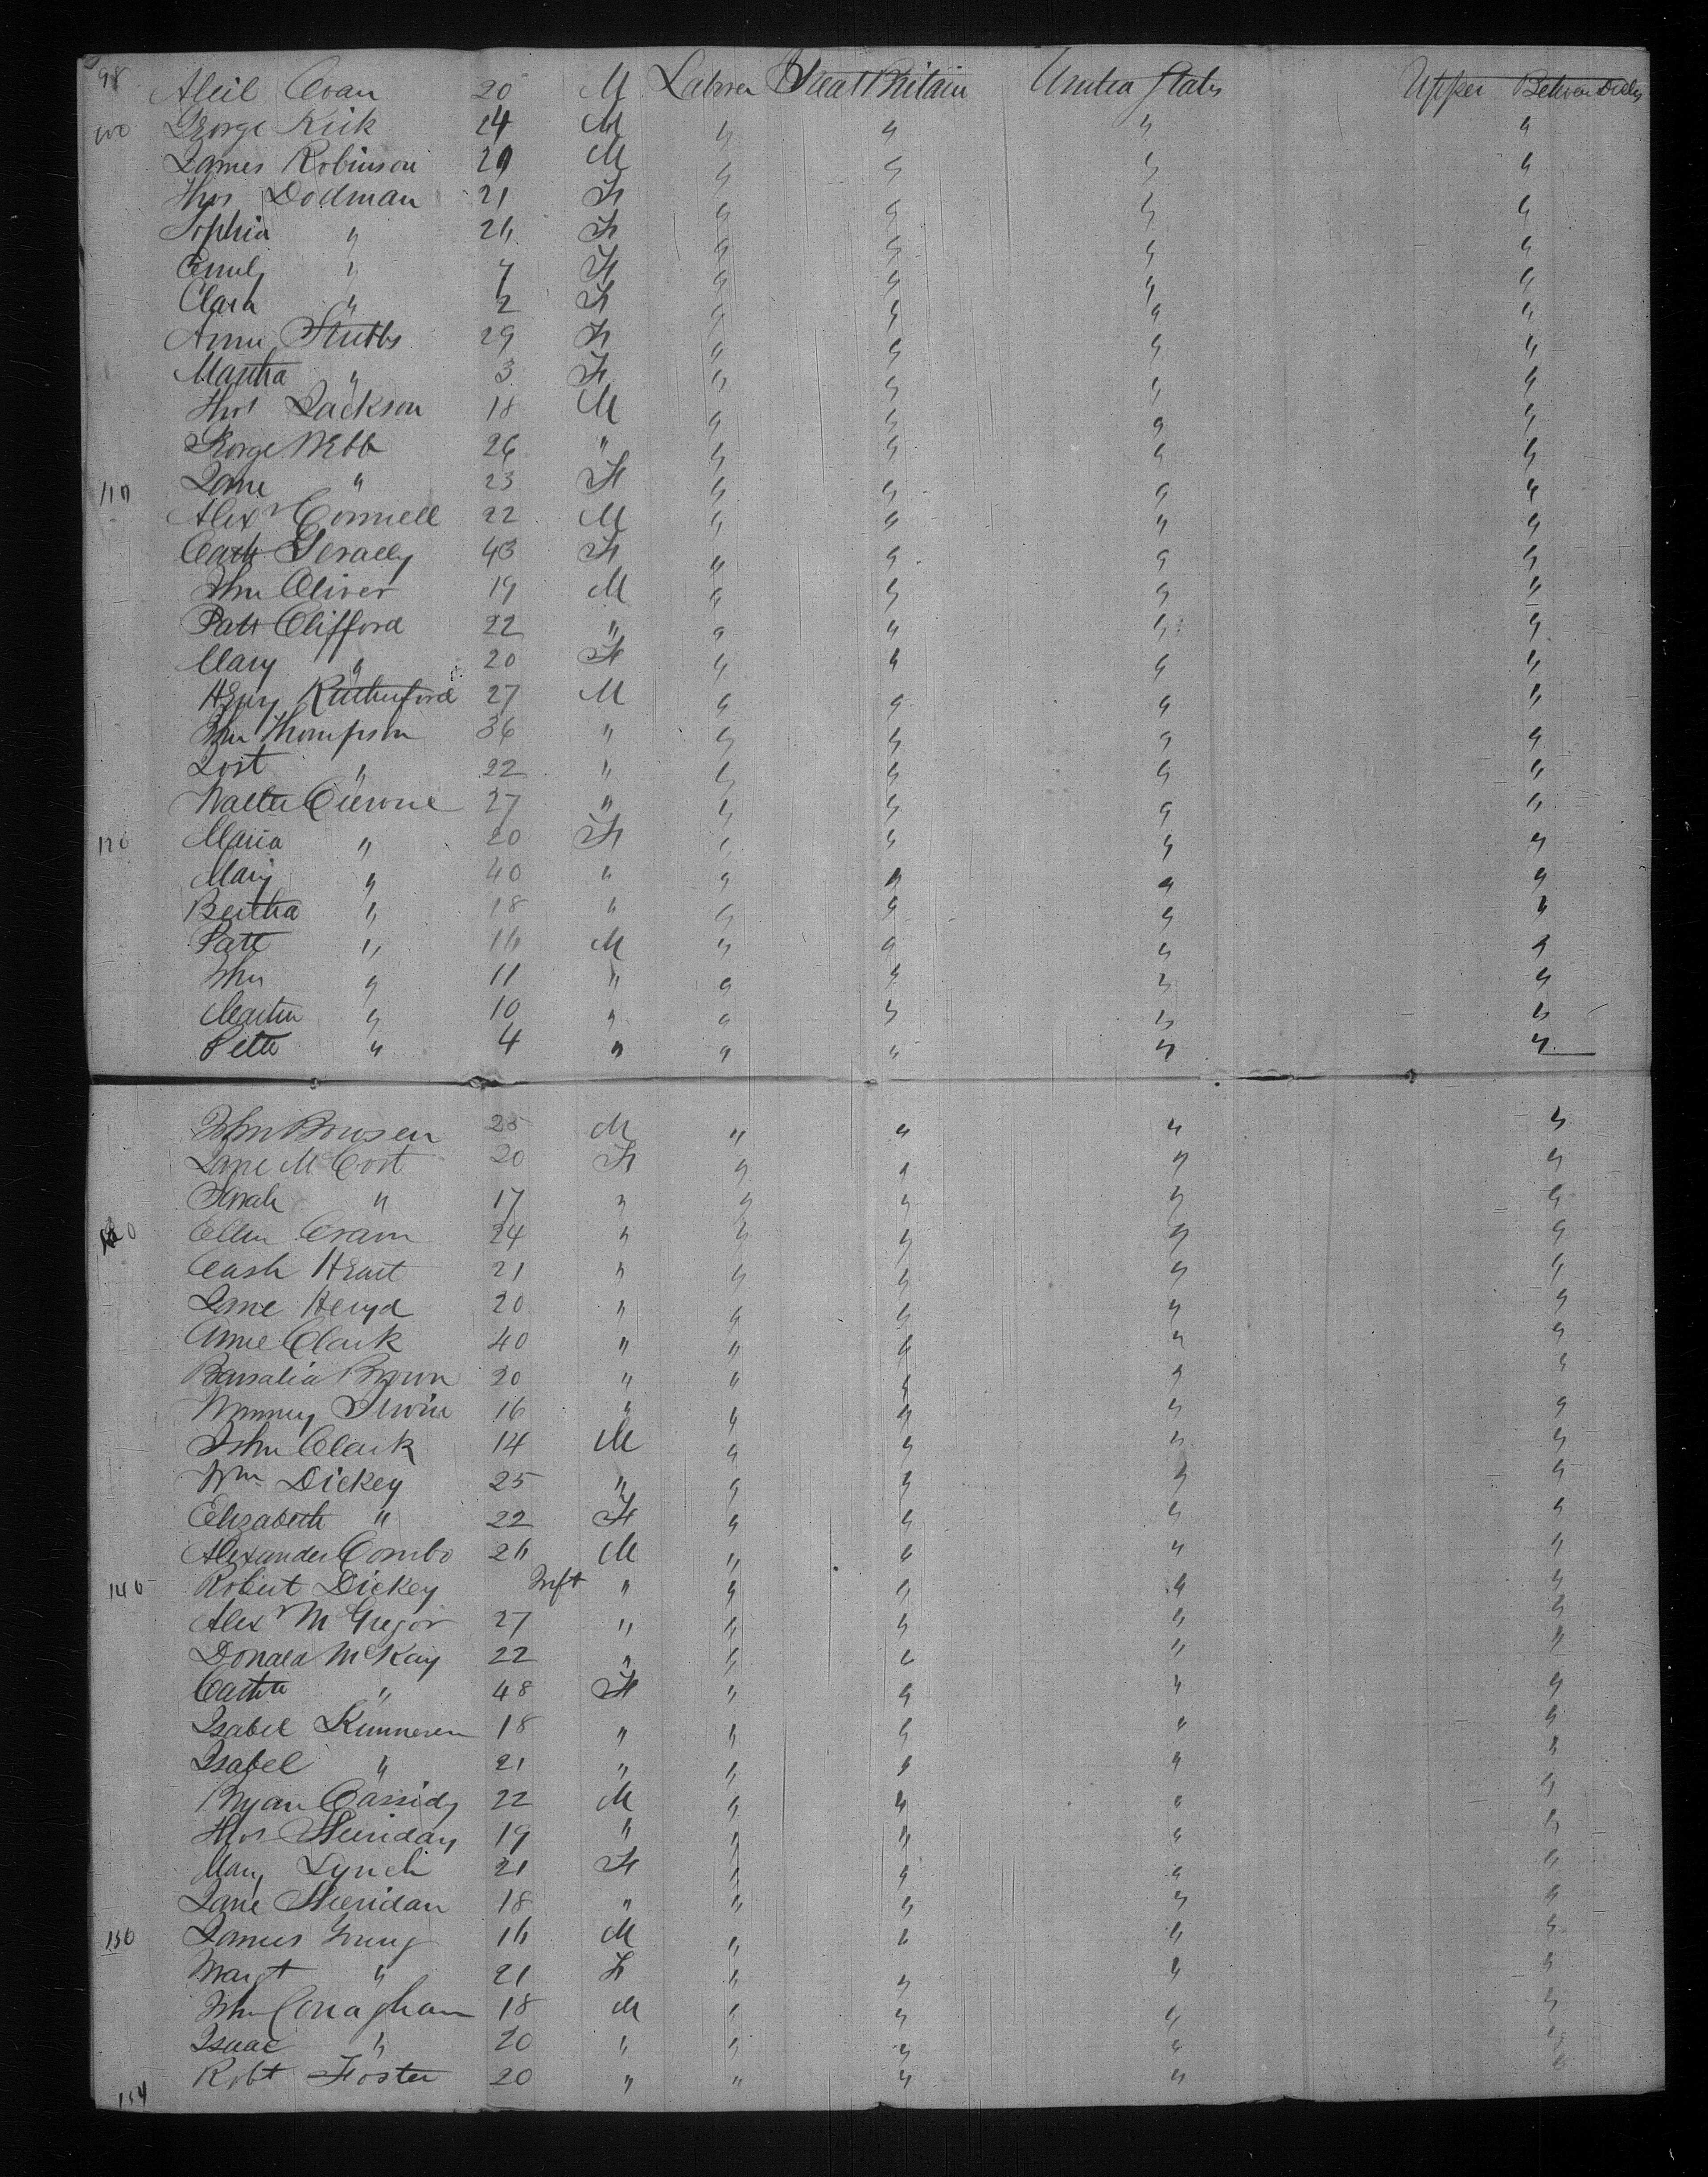 98 Neil Evan 20 M Laborer Great Britain United States Upper Between Decks
100 George Kirk 24 M " " " "
James Robinson 29 M " " " "
Thos Dodman 21 F " " " "
Sophia " 26 F " " " "
Emily " 7 F " " " "
Clara " 2 F " " " "
Annie Stubbs 29 F " " " "
Martha " 3 F " " " "
Thos Jackson 18 M " " " "
George Webb 26 " " " " "
110 Jane " 23 F " " " "
Alexr Connell 22 M " " " "
Cath Geraety 43 F " " " "
John Oliver 19 M " " " "
Patt Clifford 22 " " " " "
Mary " 20 F " " " "
Henry Rutherford 27 M " " " "
Jhn Thompson 36 " " " " "
" 22 " " " " "
Walter 27 " " " " "
120 Maria " 20 F " " " "
Mary " 40 " " " " "
Bertha " 18 " " " " "
Patt " 16 M " " " "
John " 11 " " " " "
Martin " 10 " " " " "
Peter " 4 " " " " "
John Bowsen 25 M " " " "
Jane McCort 20 F " " " "
Sarah " 17 " " " " "
130 Ellen Cram 24 " " " " "
Cash Heart 21 " " " " "
Jane Heryd 20 " " " " "
Annie Clark 40 " " " " "
Brown 20 " " " " "
Winney Irwin 16 " " " " "
John Clark 14 M " " " "
Wm Dickey 25 " " " " "
Elizabeth " 22 F " " " "
Alexander Combo 26 M " " " "
140 Robert Dickey Inft " " " " "
Alexr McGregor 27 " " " " "
Donald McKay 22 " " " " "
" 48 F " " " "
Isabel Kinneren 18 " " " " "
Isabel " 21 " " " " "
Bryan Cassidy 22 M " " " "
Thos Sheriday 19 " " " " "
Mary Lynch 21 F " " " "
Jane Sheridan 18 " " " " "
150 James Young 16 M " " " "
Margt " 21 F " " " "
John Conaghan 18 M " " " "
Isaac " 20 " " " " "
154 Robt Foster 20 " " " " "